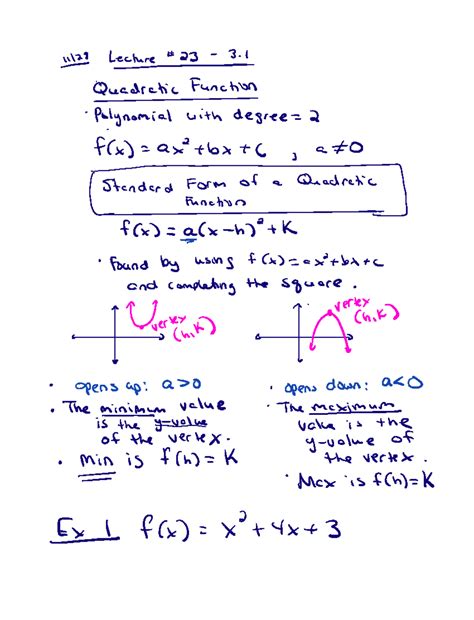 11/29 Lecture # 23 - 3.1
Quadratic Function
· Polynomial with degree = 2
f(x) = ax² + bx + c , a ≠ 0
Standard Form of a Quadratic
Function
f(x) = a(x-h)² + K
· Found by using f(x) = ax² + bx + c
and completing the square.
vertex
(h,K)
vertex
(h,K)
· opens up: a>0
· The minimum value
is the y-value
of the vertex.
· Min is f(h) = K
· opens down: a<0
· The maximum
value is the
y-value of
the vertex.
· Max is f(h) = K
Ex 1 f(x) = x² + 4x + 3